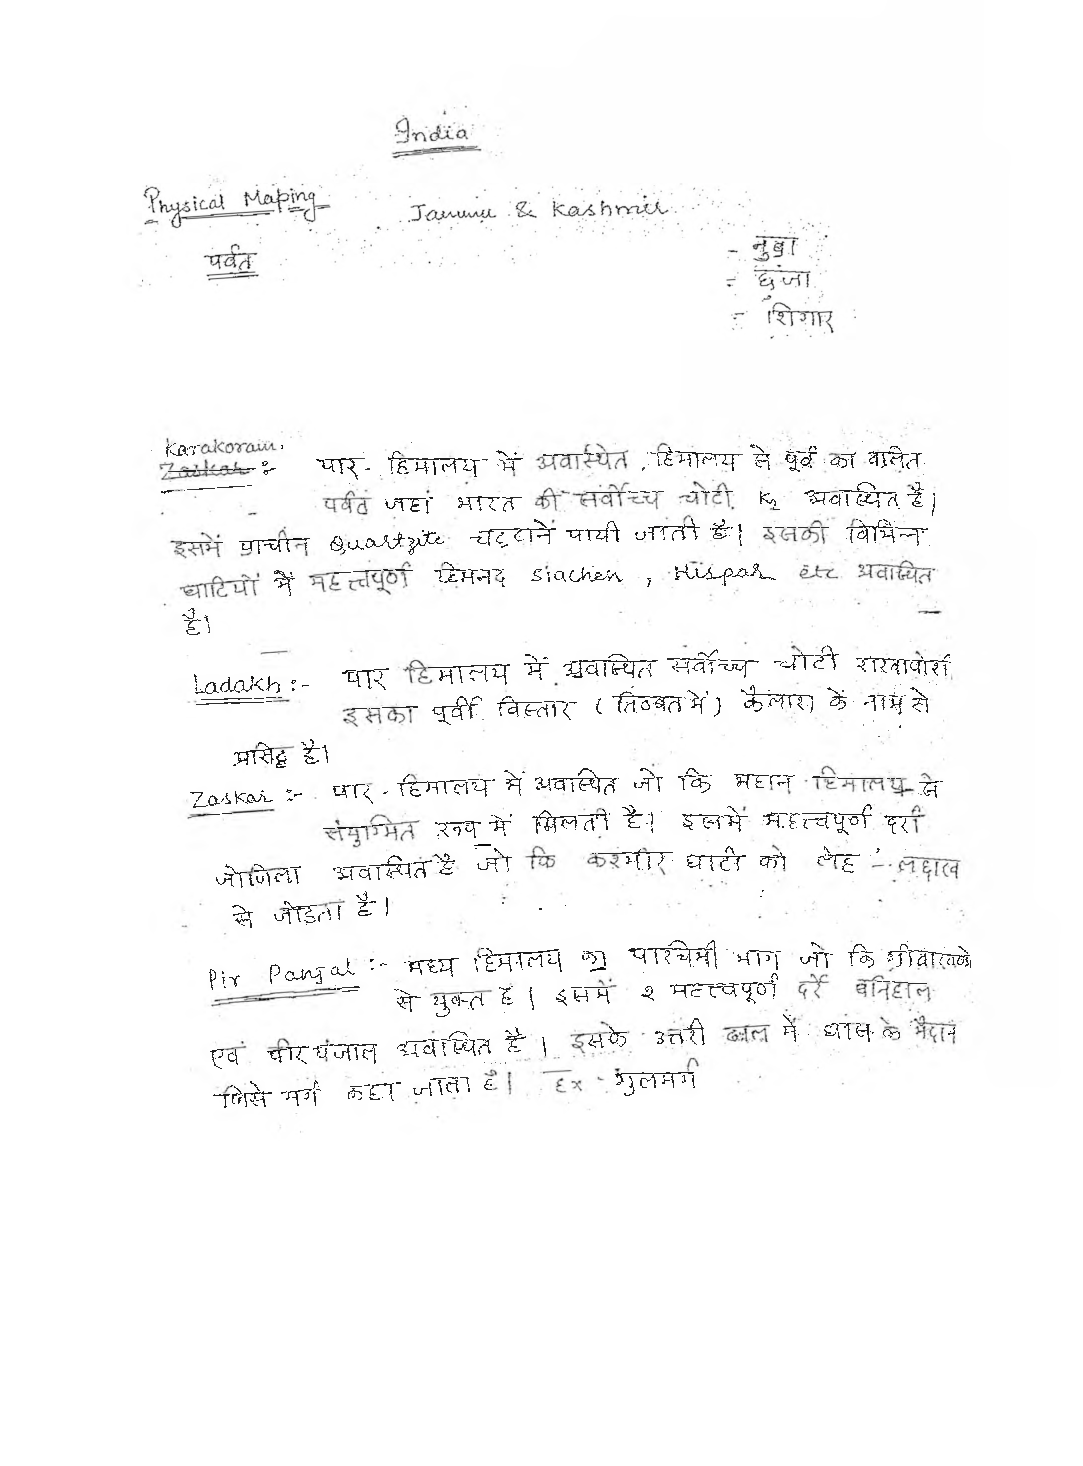 India
Physical Maping
Jammu & Kashmir
- नुब्रा
पर्वत
- हुंजा
- शिगार
Karakoram.
Zaskar :- पार - हिमालय में अवस्थित, हिमालय से पूर्व का वलित
पर्वत जहां भारत की सर्वोच्च चोटी K2 अवस्थित है।
इसमें प्राचीन Quartzite चट्टानें पायी जाती है। इसकी विभिन्न
घाटियों में महत्वपूर्ण हिमनद Siachen, Hispar etc अवस्थित
है।
Ladakh :- पार हिमालय में अवस्थित सर्वोच्च चोटी राखापोशी
इसका पूर्वी विस्तार (तिब्बत में) कैलाश के नाम से
प्रसिद्ध है।
Zaskar :- पार - हिमालय में अवस्थित जो कि महान हिमालय से
संयुग्मित रूप में मिलती है। इसमें महत्त्वपूर्ण दर्रा
जोजिला अवस्थित है जो कि कश्मीर घाटी को लेह - लद्दाख
से जोड़ता है।
Pir Panjal :- मध्य हिमालय का पश्चिमी भाग जो कि ग्रीवाखण्ड
से युक्त है। इसमें 2 महत्त्वपूर्ण दर्रे बनिहाल
एवं पीर पंजाल अवस्थित है। इसके उत्तरी ढाल में घास के मैदान
जिसे मर्ग कहा जाता है। Ex - गुलमर्ग